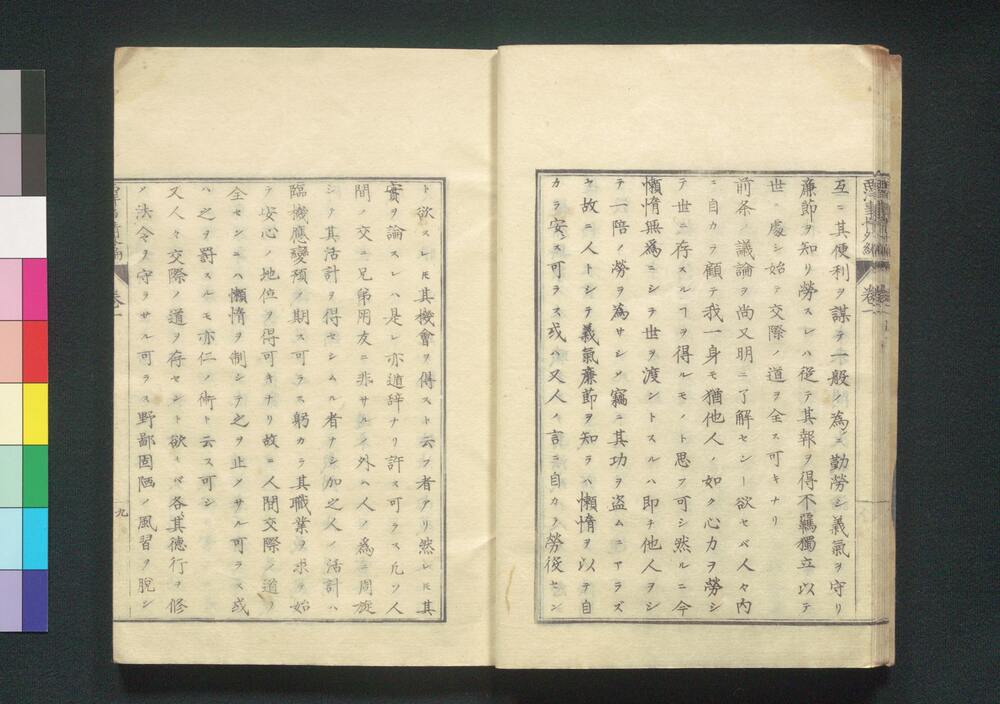 互ニ其便利ヲ謀テ一般ノ為ニ勤勞シ義氣ヲ守リ
廉節ヲ知リ勞スレハ従テ其報ヲ得不羈獨立以テ
世ニ處シ始テ交際ノ道ヲ全ス可キナリ
前条ノ議論ヲ尚又明ニ了解セント欲セバ人々内
ニ自カラ顧テ我一身モ猶他人ノ如ク心力ヲ勞シ
テ世ニ存スルヿヲ得ルモノト思フ可シ然ルニ今
懶惰無為ニシテ世ヲ渡ントスルハ即チ他人ヲシ
テ一陪ノ勞ヲ為サシメ竊ニ其功ヲ盗ムニアラズ
ヤ故ニ人トシテ義氣廉節ヲ知ラハ懶惰ヲ以テ自
カラ安ス可ラス或ハ又人ノ言ニ自カラ勞役セン
ト欲スレ𪜈其機會ヲ得スト云フ者アリ然レ𪜈其
實ヲ論スレハ是レ亦遁辞ナリ許ス可ラス凡ソ人
間ノ交ニ兄弟朋友ニ非サルノ外ハ人ノ為ニ周旋
シテ其活計ヲ得セシムル者ナシ加之人ノ活計ハ
臨機應變預メ期ス可ラス躬カラ其職業ヲ求テ始
テ安心ノ地位ヲ得可キナリ故ニ人間交際ノ道ヲ
全センニハ懶惰ヲ制シテ之ヲ止メサル可ラス或
ハ之ヲ罰スルモ亦仁ノ術ト云ス可シ
又人々交際ノ道ヲ存セント欲セバ各其德行ヲ修
メ法令ヲ守ラサル可ラス野鄙固陋ノ風習ヲ脱シ
卷一
九